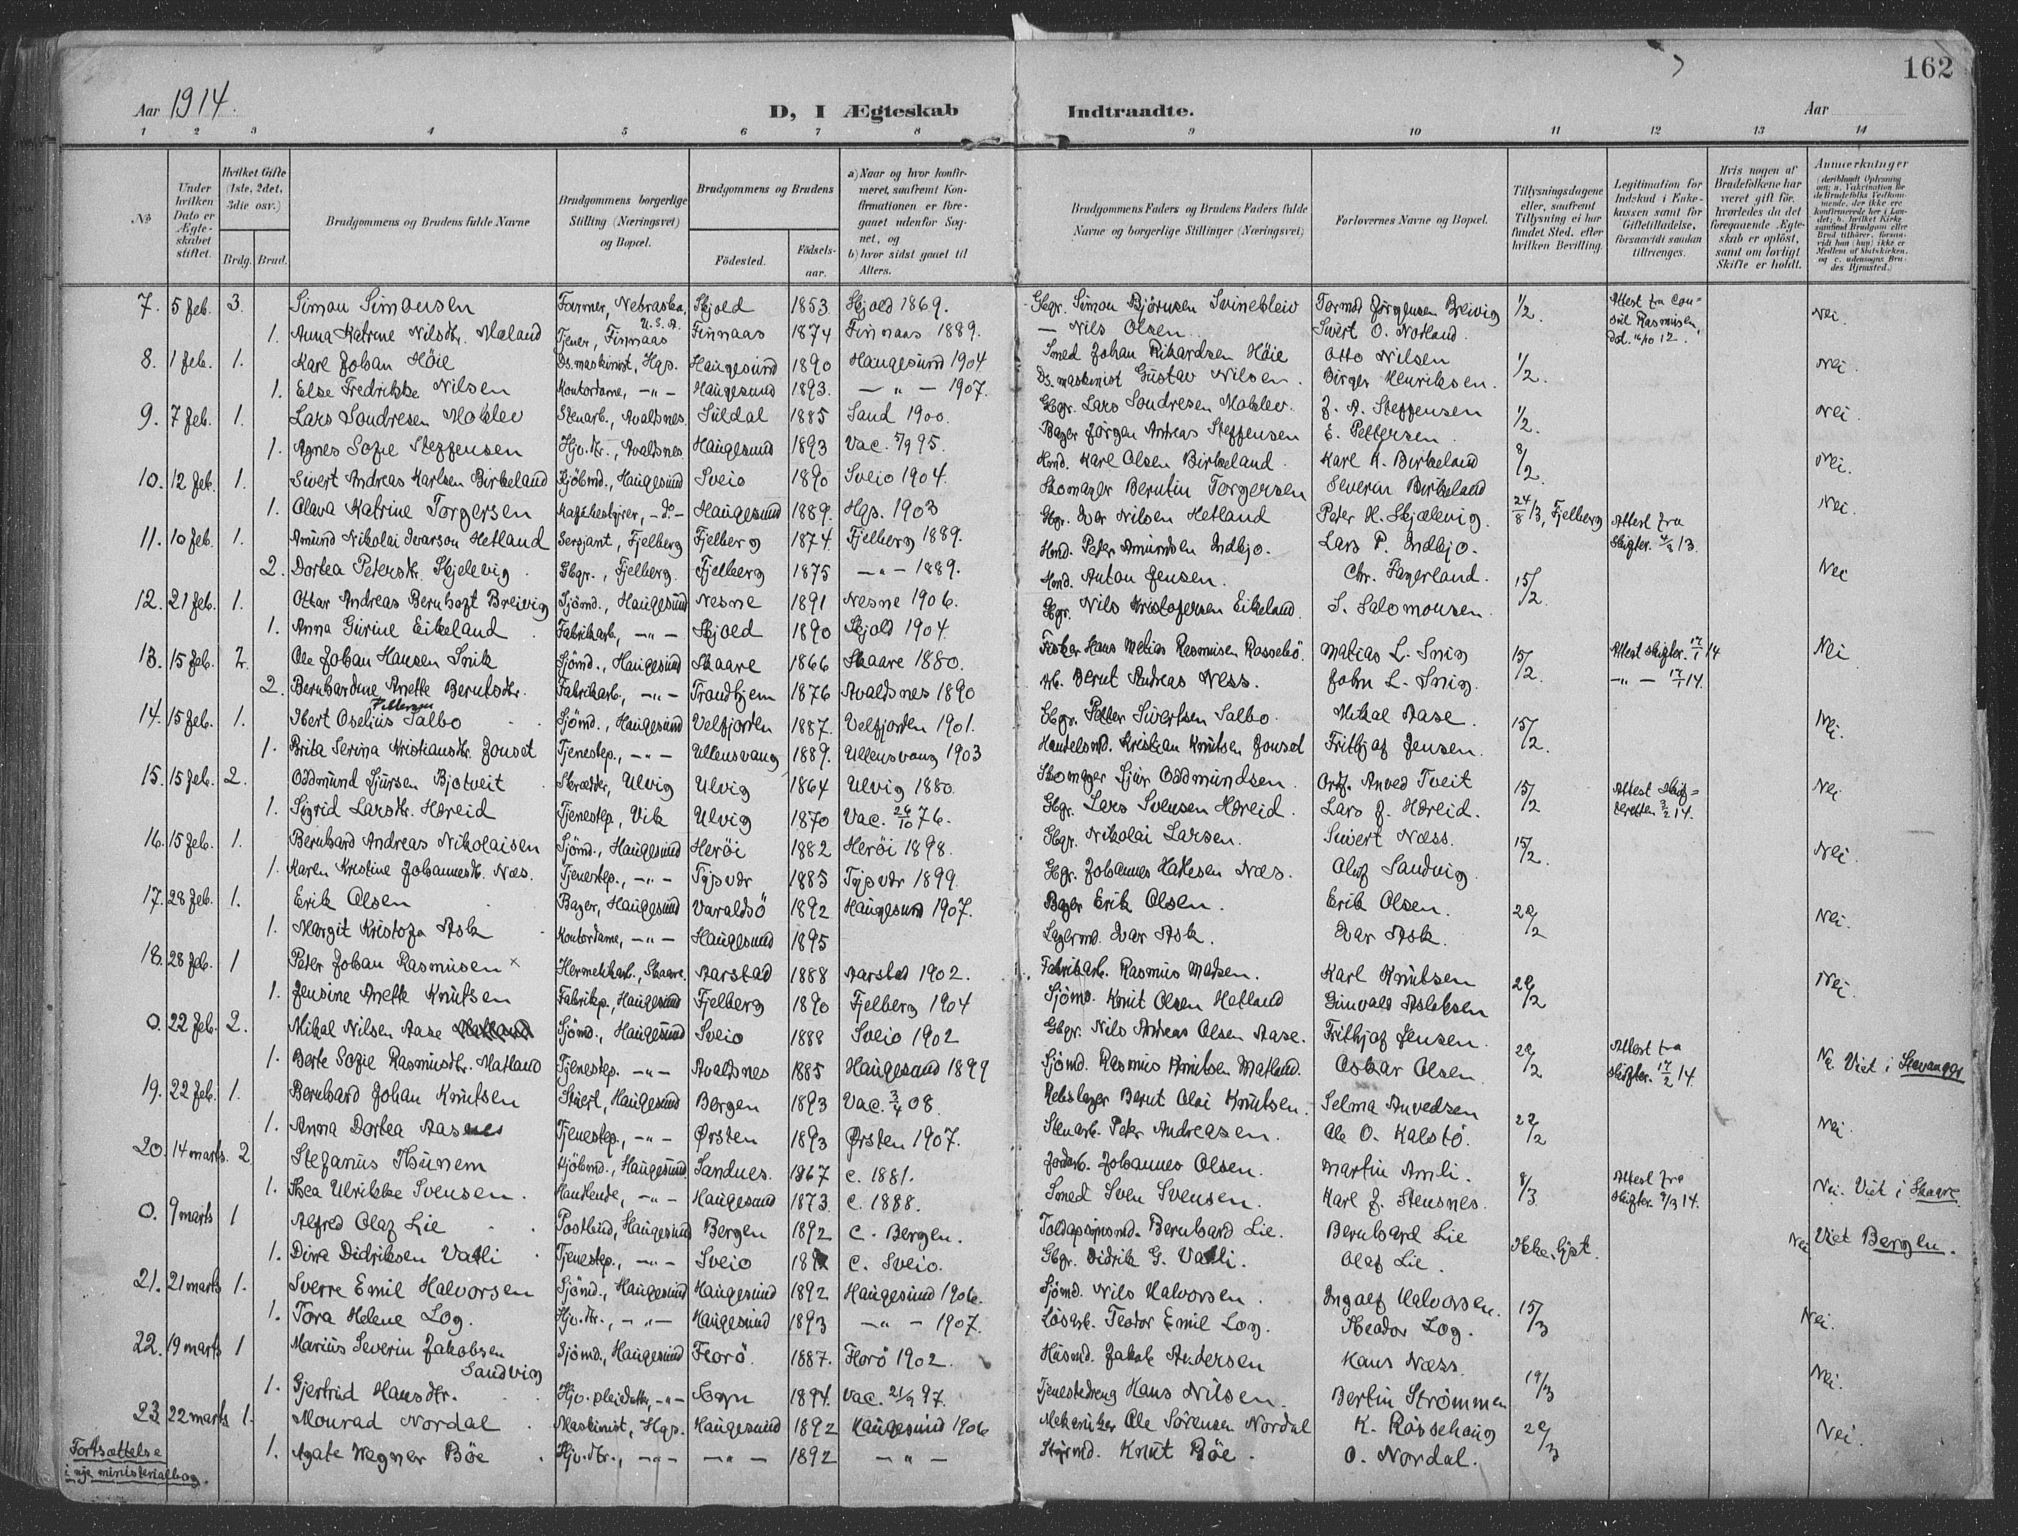 162
Aar 1914.
D, I Ægteskab Indtraadte.
Aar
1 2 3 4 5 6 7 8 9 10 11 12 13 14
No
Under hvilken Dato er Ægteskabet stiftet.
Hvilket Gifte (1ste, 2det, 3die osv.)
Brdg. Brud.
Brudgommens og Brudens fulde Navne
Brudgommens borgerlige Stilling (Næringsvei) og Bopæl.
Brudgommens og Brudens
Fødested.
Fødselsaar.
a) Naar og hvor konfirmeret, saafremt Konfirmationen er foregaaet udenfor Sognet, og
b) hvor sidst gaaet til Alters.
Brudgommens Faders og Brudens Faders fulde Navne og borgerlige Stillinger (Næringsvei)
Forlovernes Navne og Bopæl.
Tillysningsdagene eller, saafremt Tillysning ei har fundet Sted, efter hvilken Bevilling.
Legitimation for Indskud i Enkekassen samt for Giftetilladelse, forsaavidt saadan tiltrænges.
Hvis nogen af Brudefolkene har været gift før, hvorledes da det foregaaende Ægteskab er opløst, samt om lovligt Skifte er holdt.
Anmerkninger
7. 5 feb. 3. Simon Simonsen Farmer, Nebraska, U.S.A. Skjold 1853 Skjold 1869. Gbr. Simon Bjørnsen Svinekleiv Tormod Jørgensen Breivig 1/2. Attest fra Consul Rasmusen, dat. 16/10 12. Nei.
1. Anna Katrine Nilsdtr. Mæland Tjener, Finnaas Finnaas 1874 Finnaas 1889. — Nils Olsen. Sivert O. Notland
8. 1 feb. 1. Karl Johan Høie Ds. maskinist, Hgs. Haugesund 1890 Haugesund 1904 Smed Johan Rikardsen Høie Otto Nilsen 1/2. Nei.
1. Else Fredrikke Nilsen Kontordame, —„— Haugesund 1893. —„— 1907. Ds. maskinist Gustav Nilsen. Birger Henriksen.
9. 7 feb. 1. Lars Sondresen Moklev Stenarb., Avaldsnes. Suldal 1885 Sand 1900. Gbr. Lars Sondresen Moklev. J. A. Steffensen 1/2. Nei.
1. Agnes Sofie Steffensen Hjv. dtr., Avaldsnes. Haugesund 1893 Vac. 5/9 95. Bager Jørgen Andreas Steffensen E. Pettersen.
10. 12 feb. 1. Sivert Andreas Karlsen Birkeland Kjøbmd., Haugesund Sveio 1890 Sveio 1904. Hmd. Karl Olsen Birkeland. Karl K. Birkeland 8/2. Nei.
1. Olava Katrine Torgersen Kafebestyrer, —D.— Haugesund 1889. Hgs. 1903 Skomager Berntin Torgersen Severin Birkeland
11. 10 feb. 1. Amund Nikolai Ivarson Hetland Sersjant, Fjelberg Fjelberg 1874. Fjelberg 1889. Gbr. Ivar Nilsen Hetland Peter H. Skjælevig. 24/8 13, Fjelberg Attest fra skifter. 4/2 13. Nei.
2. Dortea Petersdtr. Skjelevig. Gbr., Fjelberg. Fjelberg 1875 —„— 1889. Hmd. Peter Amundsen Indbjo. Lars P. Indbjo.
12. 21 feb. 1. Ottar Andreas Bernhoft Breivig Sjömd., Haugesund Nesne 1891 Nesne 1906. Hmd. Anton Jensen. Chr. Fagerland. 15/2. Nei
1. Anna Gurine Eikeland Fabrikarb., —„— Skjold 1890 Skjold 1904. Gbr. Nils Kristofersen Eikeland. S. Salomonsen.
13. 15 feb. 2. Ole Johan Hansen Snik Sjömd., Haugesund Skaare 1866 Skaare 1880. Fisker Hans Matias Rasmusen Rossebö. Matias L. Snig 15/2. Attest skifter. 17/1 14 Nei
2. Bernhardine Anette Berntsdtr. Fabrikarb., —„— Trondhjem 1876 Avaldsnes 1890 Arb. Bernt Andreas Ness. John L. Snig. —„— 17/1 14.
14. 15 feb. 1. Ibert Oselius Pettersen Salbo Sjömd., Haugesund Velfjorden 1887. Velfjorden 1901. Gbr. Petter Sivertsen Salbo. Mikal Aase. 15/2. Nei.
1. Brita Serina Kristiansdtr. Jonset Tjenestep., —„— Ullensvang 1889. Ullensvang 1903 Handelsmd. Kristian Knutsen Jonset Fritjof Jensen.
15. 15 feb. 2. Oddmund Sjursen Bjotveit Skrædder, Ulvig Ulvig 1864 Ulvig 1880. Skomager Sjur Oddmundsen. Ordf. Anved Tveit 15/2 Attest skifteretten 3/2 14. Nei
1. Sigrid Larsdtr. Hæreid Tjenestep, Vik Ulvig 1870 Vac. 26/10 76. Gbr. Lars Svensen Hæreid. Lars J. Hæreid.
16. 15 feb. 1. Bernhard Andreas Nikolaisen Sjömd., Haugesund Herøi 1882 Herøi 1898. Gbr. Nikolai Larsen. Sivert Næss. 15/2. Nei.
1. Karen Kristine Johannesdtr. Næs. Tjenestep., —„— Tysvær 1885 Tysvær 1899. Gbr. Johannes Hatlesen Næs. Oluf Sandvig.
17. 28 feb. 1. Erik Olsen Bager, Haugesund Varaldsö 1892 Haugesund 1907. Bager Erik Olsen. Erik Olsen. 22/2 Nei.
1. Margit Kristofa Ask Kontordame, —„— Haugesund 1895 Lagermd. Ivar Ask. Ivar Ask.
18. 28 feb. 1 Peter Johan Rasmusen × Hermetikarb., Skaare. Aarstad 1888 Aarstad 1902. Fabrikarb. Rasmus Madsen. Karl Knutsen 22/2 Nei.
1. Jensine Anette Knutsen Fabrikp., Haugesund Fjelberg 1890 Fjelberg 1904 Sjömd. Knut Olsen Hetland Gunvald Aslaksen
0. 22 feb. 2. Mikal Nilsen Aase Sjömd., Haugesund Sveio 1888 Sveio 1902 Gbr. Nils Andreas Olsen Aase. Fritjof Jensen. 22/2 Attest fra skifter. 17/2 14. Nei. Viet i Stavanger
1. Berte Sofie Rasmusdtr. Matland Tjenestep. —„— Avaldsnes 1885 Haugesund 1899 Sjömd. Rasmus Knutsen Matland. Oskar Olsen
19. 22 feb. 1. Bernhard Johan Knutsen Stuert, Haugesund Bergen 1893 Vac. 3/4 08. Rebslager Bernt Olai Knutsen. Selma Anvedsen 22/2 Nei.
1. Anna Dortea Aasnes Tjenestep., —„— Ørsten 1893 Ørsten 1907. Stenarb. Peter Andreasen. Ole O. Kalstö.
20. 14 marts 2 Stefanus Thunem Kjöbmd., Haugesund Sandnes. 1867 C. 1881. Jordarb. Johannes Olsen. Martin Amli. 8/3 Attest fra skifter. 9/3 14. Nei. Viet i Skaare
1. Thea Ulrikke Svensen. Handlende, —„— Haugesund 1873. C. 1888. Smed Sven Svensen. Karl J. Stensnes.
0. 9 marts 1 Alfred Olaf Lie Postbud, Haugesund Bergen 1892 C. Bergen. Toldopsynsmd. Bernhard Lie. Bernhard Lie Ikke lyst. Nei Viet Bergen.
1. Dirra Didriksen Valli Tjenestep., —„— Sveio C. Sveio. Gbr. Didrik G. Valli. Olaf Lie.
21. 21 marts 1. Sverre Emil Halvorsen Sjömd., Haugesund Haugesund 1892 Haugesund 1906. Sjömd. Nils Halvorsen. Ingolf Halvorsen. 15/3 Nei.
1. Tora Helene Log. Hjv. dtr., —„— Haugesund 1893 —„— 1907. Løsarb. Teodor Emil Log. Theodor Log.
22. 19 marts 1 Marius Severin Jakobsen Sandvig Sjömd., Haugesund Florö. 1887. Florö 1902. Husmd. Jakob Andersen Hans Næss. 19/3 Nei.
1. Gjertrud Hansdtr. Hjv. pleiedatter, —„— Sogn 1894 Vac. 21/9 97. Tjenestedreng Hans Nilsen. Bertin Strømmen
23. 22 marts 1. Monrad Nordal Maskinist, Hgs. Haugesund 1892 Haugesund 1906 Mekaniker Ole Sørensen Nordal K. Rossehaug 22/3 Nei.
1. Agate Wegner Böe Hjv. dtr., —„— —„— 1892 —„— Styrmd. Knut Böe. O. Nordal.
Fortsættelse
i nye ministerialbog.